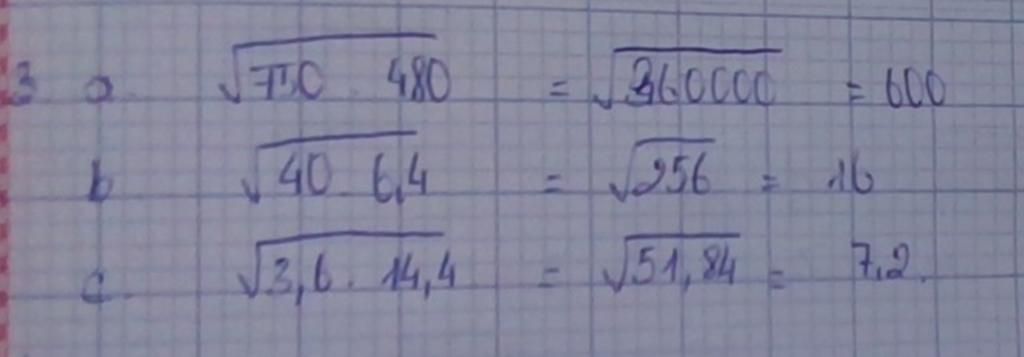 3 a. √750 . 480 = √360000 = 600
b √40 . 6,4 = √256 = 16
c. √3,6 . 14,4 = √51,84 = 7,2.